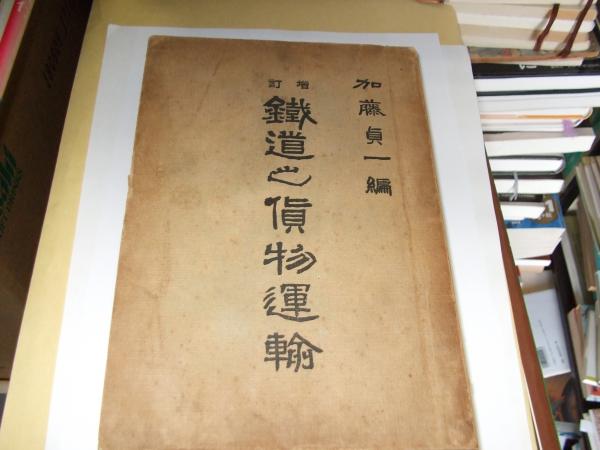 加藤貞一編
増訂
鐵道之貨物運輸